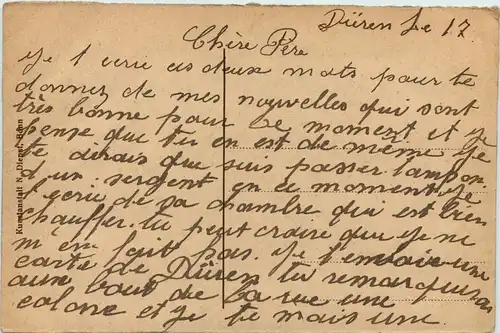 Düren Le 17
Chère Père
Je t ecrie ces deux mots pour te
donnez de mes nouvelles qui sont
très bonne pour ce moment et je
pense que tu en est de même Je
te dirais que suis passer tampon
d'un sergent en ce moment Je
gerie de sa chambre qui est bien
chauffer. tu peut craire que je ne
m'en fait pas. Je t'envoie une
carte de Düren tu remarqueras
aux bout de la rue une
colone et je te mais une
Kunstanstalt N. Diener, Bonn